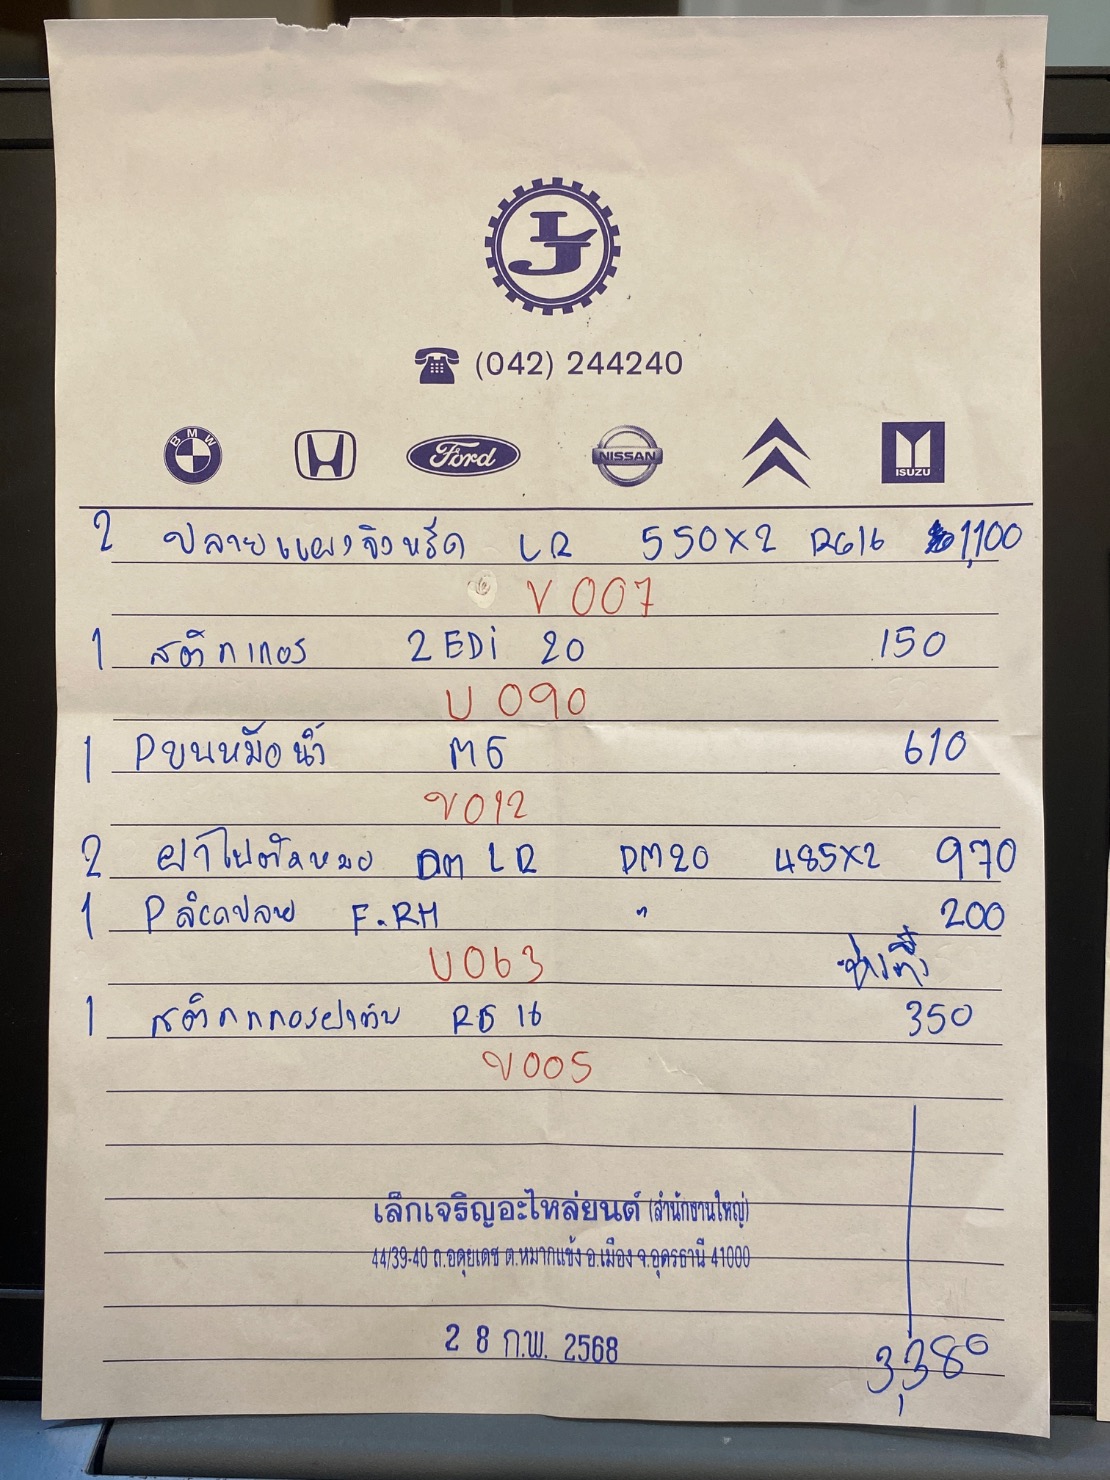 LJ
(042) 244240
BMW Ford NISSAN ISUZU
2 ปลายแผงจิงหรีด LR 550X2 RG16 1,100
V 007
1 สติกเกอร 2 EDi 20 150
U 090
1 Pขนหม้อน้ำ M6 610
V012
2 ฝาไฟตัดหมอ DM LR DM20 485X2 970
1 P F-RH " 200
U063
1 RG 16 350
V005
เล็กเจริญอะไหล่ยนต์ (สำนักงานใหญ่)
44/39-40 ถ.อดุยเดช ต.หมากแข้ง อ.เมือง จ.อุดรธานี 41000
2 8 ก.พ. 2568
3,380